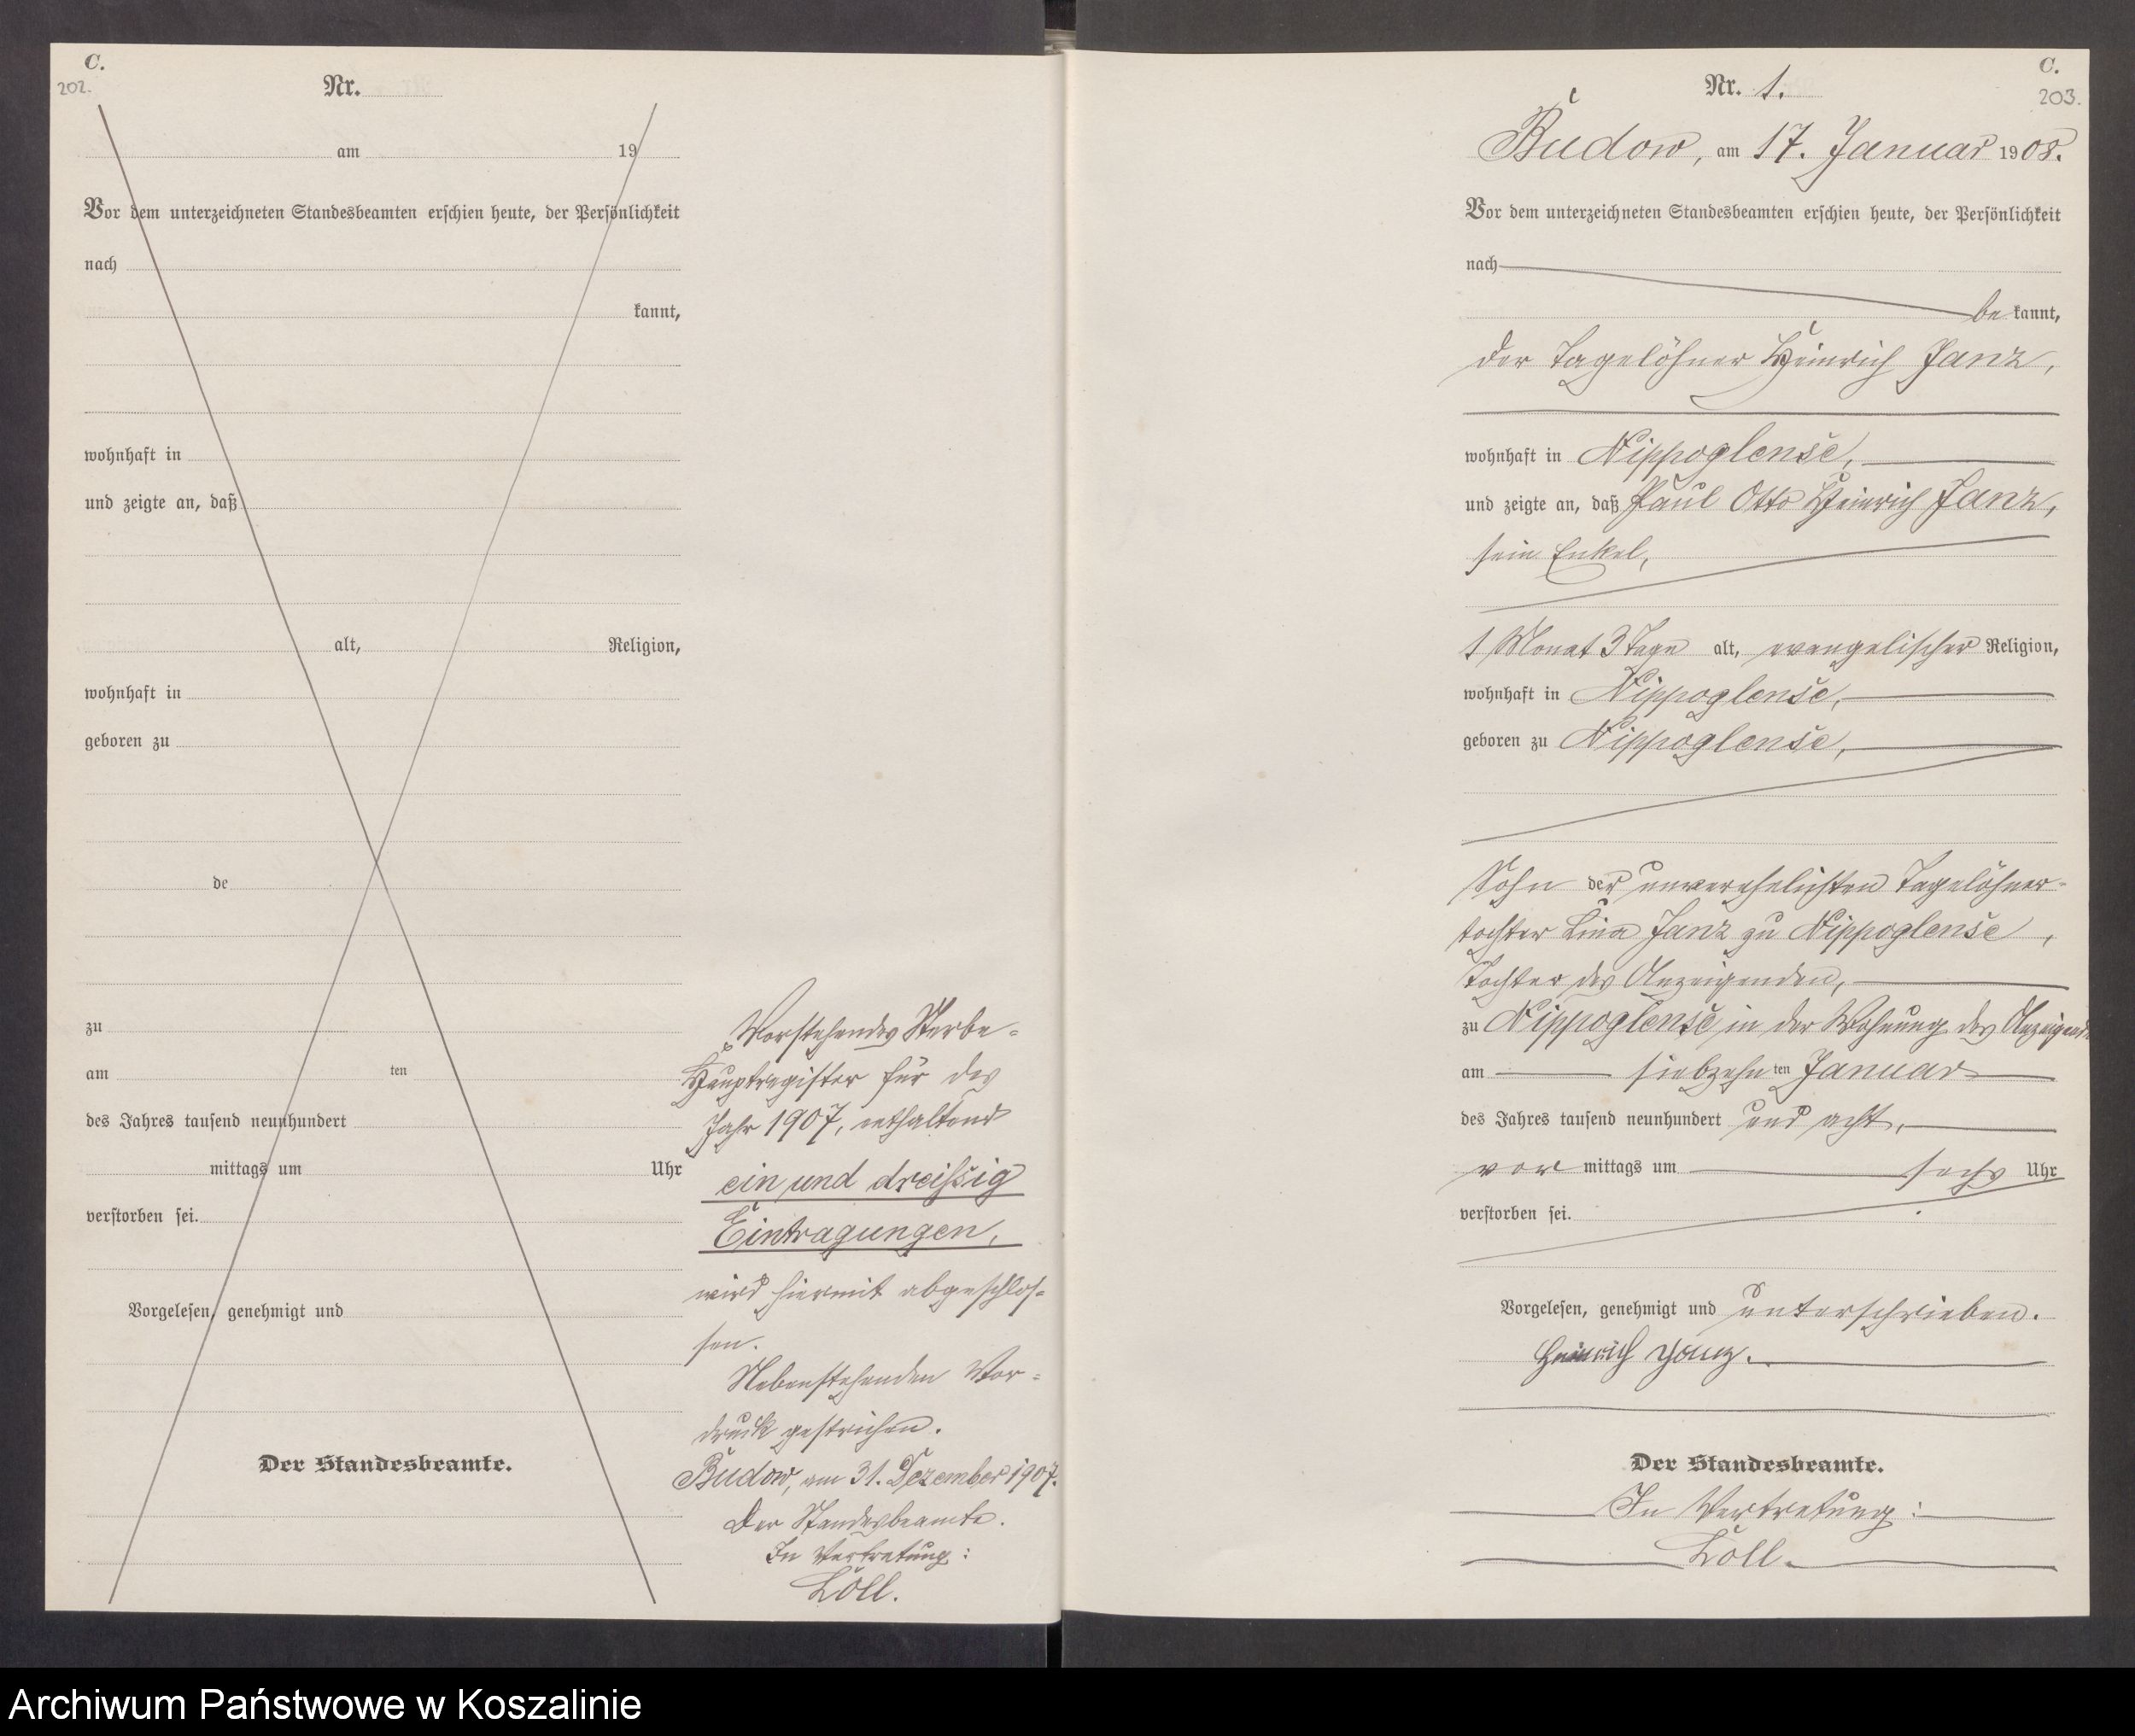 C.
202.
Nr.
am 19
Vor dem unterzeichneten Standesbeamten erschien heute, der Persönlichkeit
nach
kannt,
wohnhaft in
und zeigte an, daß
alt, Religion,
wohnhaft in
geboren zu
de
zu
am ten
des Jahres tausend neunhundert
mittags um Uhr
verstorben sei.
Vorgelesen, genehmigt und
Der Standesbeamte.
Vorstehendes Sterbe-
Hauptregister für das
Jahr 1907, enthaltend
ein und dreißig
Eintragungen,
wird hiermit abgeschlos-
sen.
Nebenstehenden Vor-
druck gestrichen.
Budow, am 31. Dezember 1907.
Der Standesbeamte.
In Vertretung:
Löll.
C.
203.
Nr. 1.
Budow, am 17. Januar 1908.
Vor dem unterzeichneten Standesbeamten erschien heute, der Persönlichkeit
nach
be kannt,
der Tagelöhner Heinrich Janz,
wohnhaft in Nippoglense,
und zeigte an, daß Paul Otto Heinrich Janz,
sein Enkel,
1 Monat 3 Tage alt, evangelischer Religion,
wohnhaft in Nippoglense,
geboren zu Nippoglense,
Sohn der unverehelichten Tagelöhner-
tochter Lina Janz zu Nippoglense,
Tochter des Anzeigenden,
zu Nippoglense in der Wohnung des Anzeigenden
am siebzehn ten Januar
des Jahres tausend neunhundert und acht,
vor mittags um sechs Uhr
verstorben sei.
Vorgelesen, genehmigt und unterschrieben.
Heinrich Janz.
Der Standesbeamte.
In Vertretung:
Löll.
Archiwum Państwowe w Koszalinie